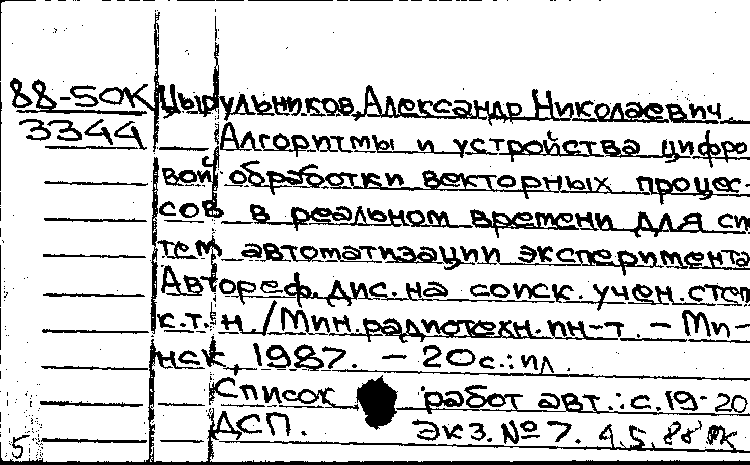 88-50К Цырульников, Александр Николаевич.
3344 Алгоритмы и устройства цифро
вой обработки векторных процес-
сов в реальном времени для сис
тем автоматизации эксперимента
Автореф. дис. на соиск. учен. степ
к.т.н. / Мин. радиотехн. ин-т. - Ми-
нск, 1987. - 20 с.: ил.
Список работ авт.: с. 19-20
ДСП. Экз. № 7. 4.5.88
5